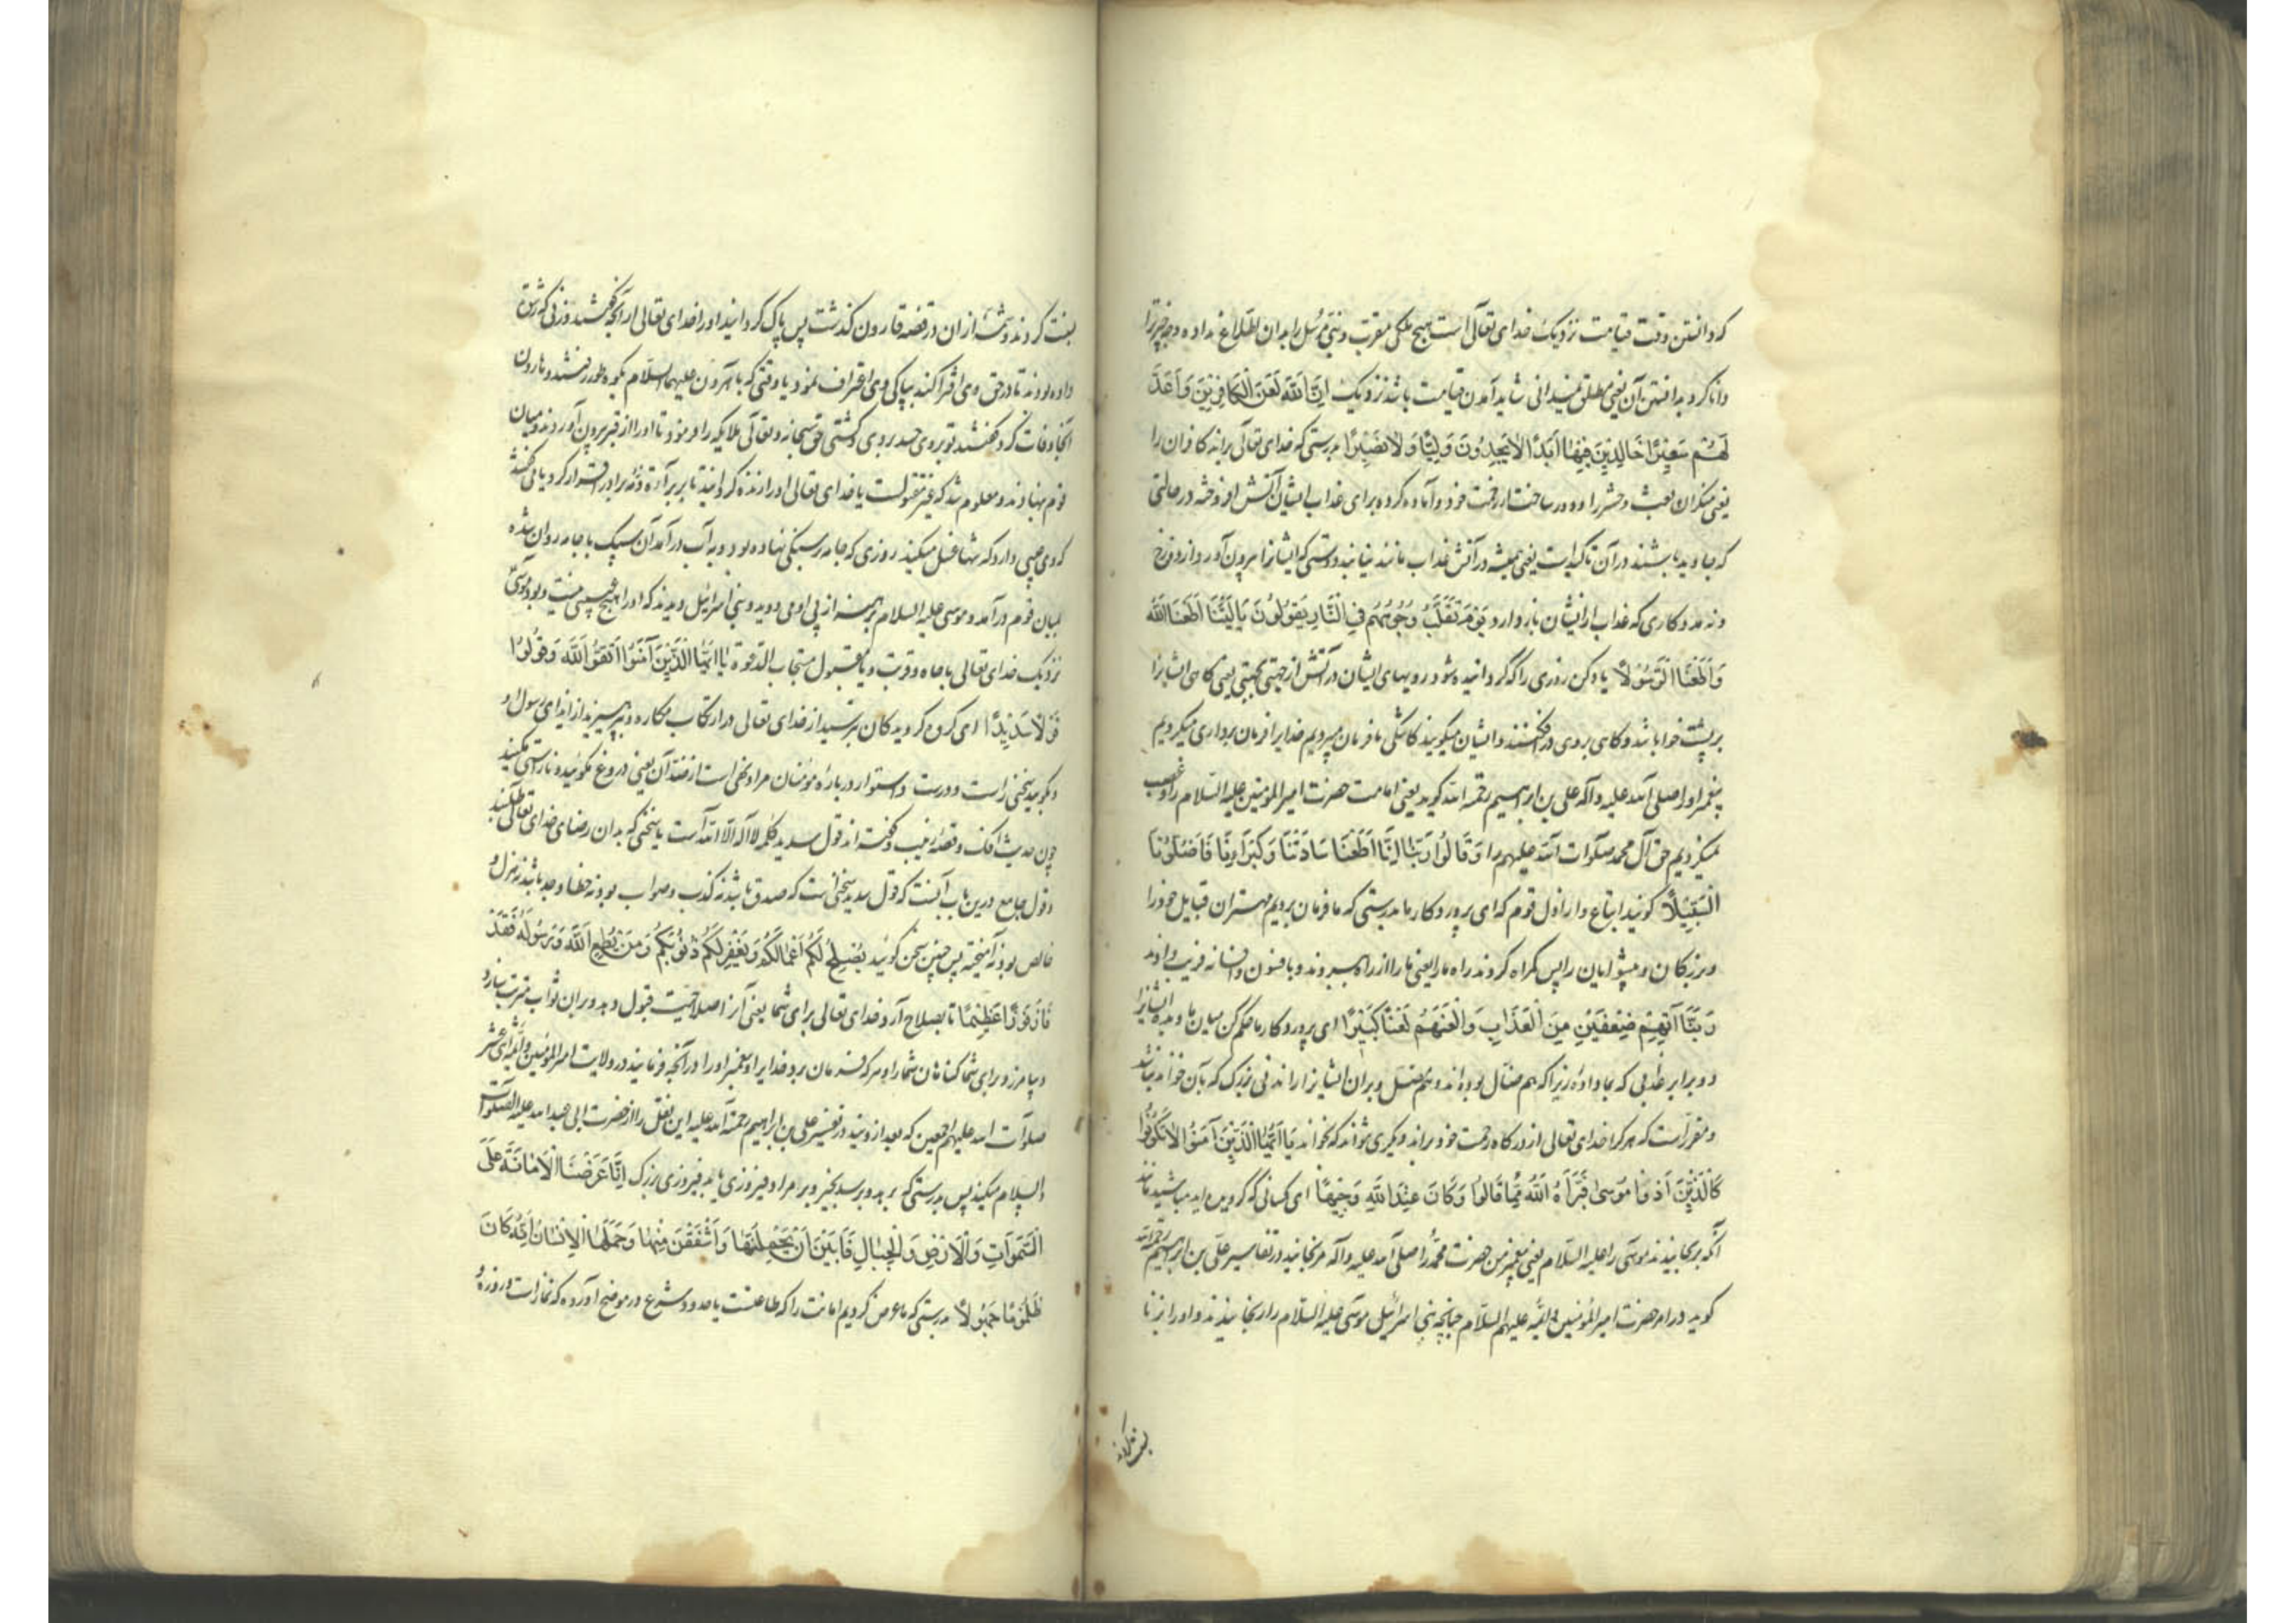 که دانستن وقت قیامت نزدیک خدای تعالی است هیچ ملکی مقرب و نبی مرسل را بدان اطلاع نداده و چه چیز ترا
دانا کرد بدانستن آن یعنی مطلق نمیدانی شاید آمدن قیامت باشد نزدیک اِنَّ اللّٰهَ لَعَنَ الْكَافِرِینَ وَ اَعَدَّ
لَهُمْ سَعِیْرًا خَالِدِیْنَ فِیْهَا اَبَدًا لَا یَجِدُوْنَ وَلِیًّا وَلَا نَصِیْرًا بدرستی که خدای تعالی براند کافران را
یعنی منکران بعث و حشر را و دور ساخت از رحمت خود و آماده کرده برای عذاب ایشان آتش افروخته در حالتی
که جاوید باشند در آن تاکیدست یعنی همیشه در آتش عذاب مانند نیابند دوستی که ایشانرا بیرون آورد از دوزخ
و نه مددکاری که عذاب از ایشان باز دارد یَوْمَ تُقَلَّبُ وُجُوْهُهُمْ فِی النَّارِ یَقُوْلُوْنَ یَا لَیْتَنَا اَطَعْنَا اللّٰهَ
وَاَطَعْنَا الرَّسُوْلَا یاد کن روزی را که گردانیده شود رویهای ایشان در آتش از جهتی بجهتی یعنی گاهی ایشانرا
بر پشت خوابا باشد و گاهی بروی در افکنند و ایشان میگویند کاشکی ما فرمان میبردیم خدایرا فرمان برداری میکردیم
پیغمبر او را صلی الله علیه و آله علی بن ابراهیم رحمة الله گوید یعنی امامت حضرت امیر المؤمنین علیه السلام را و غصب
نمیکردیم حق آل محمد صلوات الله علیهم را وَ قَالُوْا رَبَّنَا اِنَّا اَطَعْنَا سَادَتَنَا وَ كُبَرَآءَنَا فَاَضَلُّوْنَا
السَّبِیْلَا گویند اتباع و اراذل قوم که ای پروردگار ما بدرستی که ما فرمان بردیم مهتران قبایل خود را
و بزرگان و پیشوایان را پس گمراه کردند راه ما را یعنی ما را از راه ببردند و بافسون و افسانه فریب دادند
رَبَّنَا آتِهِمْ ضِعْفَیْنِ مِنَ الْعَذَابِ وَ الْعَنْهُمْ لَعْنًا كَبِیْرًا ای پروردگار ما حکم کن میان ما و بده ایشانرا
دو برابر عذابی که بما داده زیرا که هم ضال بوده‌اند و هم مضل و بران ایشانرا راندنی بزرگ که بآن خواند نباشد
و مقرر است که هر کرا خدای تعالی از درگاه رحمت خود براند دیگری نتواند که بخواند یَا اَیُّهَا الَّذِیْنَ آمَنُوْا لَا تَكُوْنُوْا
كَالَّذِیْنَ آذَوْا مُوْسٰی فَبَرَّاَهُ اللّٰهُ مِمَّا قَالُوْا وَ كَانَ عِنْدَ اللّٰهِ وَجِیْهًا ای کسانی که گرویده‌اید مباشید مانند
آنکه برنجانیدند موسی را علیه السلام یعنی پیغمبر من حضرت محمد را صلی الله علیه و آله مرنجانید در تفاسیر علی بن ابراهیم رحمة الله
گوید در امر حضرت امیر المؤمنین و ائمه علیهم السلام چنانچه بنی اسرائیل موسی علیه السلام را رنجانیدند و او را بزنا
نسبت کردند
نسبت کردند و شمّه از ان در قصه قارون گذشت پس پاک گردانید او را خدای تعالی از آنچه گفتند و زنی که رشوت
داده بودند تا در حق وی افترا کند بپاکی وی اعتراف نمود یا وقتی که با هارون علیهما السلام بکوه طور رفتند و هارون
آنجا وفات کرد گفتند تو بروی حسد بردی و کشتی حق سبحانه و تعالی ملایکه را فرمود تا او را از قبر بیرون آوردند و میان
قوم نهادند و معلوم شد که غیر مقتولست یا خدای تعالی او را زنده گردانید تا بر براءة ذمه برادر اقرار کرد یا می گفتند
که وی عیبی دارد که تنها غسل میکند روزی که جامه بر سنگی نهاده بود و به آب در آمد آن سنگ با جامه روان شده
بمیان قوم در آمد و موسی علیه السلام برهنه از پی او می دوید و بنی اسرائیل دیدند که او را هیچ عیبی نیست و بود موسی
نزدیک خدای تعالی با جاه و قربت و یا مقبول مستجاب الدعوة یَا اَیُّهَا الَّذِیْنَ آمَنُوا اتَّقُوا اللّٰهَ وَ قُوْلُوْا
قَوْلًا سَدِیْدًا ای گروه گرویدگان بترسید از خدای تعالی در ارتکاب مکاره و بپرهیزید از ایذای رسول او
و بگوید سخنی راست و درست و استوار در باره مؤمنان مراد نهی است از ضد آن یعنی دروغ مگوئید و ناراستی مکنید
چون حدیث افک و قصه زینب و گفته‌اند قول سدید کلمه لا اله الا الله است یا سخنی که بدان رضای خدای تعالی طلبند
و قول جامع درین باب آنست که قول سدید سخنی است که صدق باشد نه کذب و صواب بود نه خطا و جد باشد نه هزل و
خالص بود نه آمیخته پس چنین سخن گوئید یُصْلِحْ لَكُمْ اَعْمَالَكُمْ وَ یَغْفِرْ لَكُمْ ذُنُوْبَكُمْ وَ مَنْ یُطِعِ اللّٰهَ وَ رَسُوْلَهُ فَقَدْ
فَازَ فَوْزًا عَظِیْمًا تا بصلاح آرد خدای تعالی برای شما یعنی آنرا صلاحیت قبول دهد و بران ثواب مترتب سازد و
و بیامرزد برای شما گناهان شما را و هر که فرمان برد خدایرا و پیغمبر او را در آنچه فرمایند در ولایت امیر المؤمنین و ائمه اثنی عشر
صلوات الله علیهم اجمعین که بعد از ویند در تفسیر علی بن ابراهیم رحمة الله علیه این نقل را از حضرت ابی عبد الله علیه الصلوات
و السلام میکند پس بدرستی که برهد و برسد بخیر و بر مراد فیروزی یابد فیروزی بزرگ اِنَّا عَرَضْنَا الْاَمَانَةَ عَلَی
السَّمٰوَاتِ وَ الْاَرْضِ وَ الْجِبَالِ فَاَبَیْنَ اَنْ یَحْمِلْنَهَا وَ اَشْفَقْنَ مِنْهَا وَ حَمَلَهَا الْاِنْسَانُ اِنَّهُ كَانَ
ظَلُوْمًا جَهُوْلًا بدرستی که ما عرض کردیم امانت را که طاعتست یا حدود شرع در موضح آورده که نماز است و روزه و